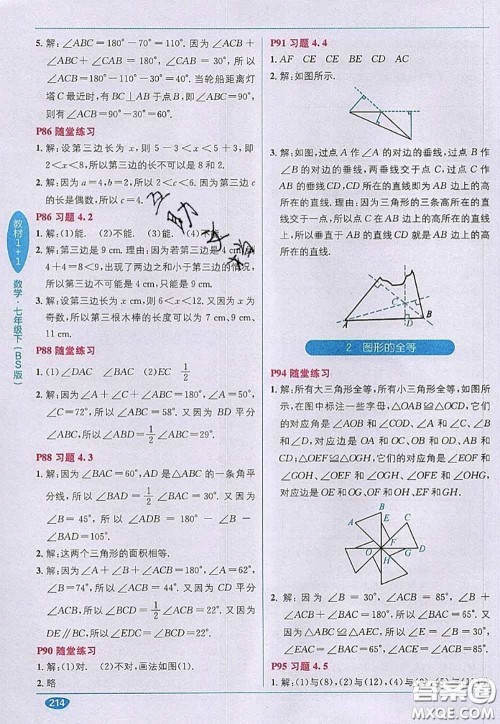 5. 解:∠ABC=180°-70°=110°. 因为∠ACB+∠ABC+∠BAC=180°,∠CAB=∠ACB,所以∠CAB=(180°-110°)÷2=35°. 当轮船距离灯塔C最近时,有BC⊥AB于点B,即∠ABC=90°,则有∠ACB=90°-30°=60°.
P86 随堂练习
1. 解:设第三边长为x,则5-3<x<5+3,即2<x<8,所以第三边的长不可以是8和2.
2. 解:因为a=4,b=2,所以2<c<6. 又因为c的长是偶数,所以c=4.
P86 习题 4.2
1. 解:(1)能. (2)不能. (3)能. (4)不能.
2. 解:第三边是9 cm. 理由:因为若第三边是4 cm,4+4=8<9,出现了两边之和小于第三边的情况,所以第三边不可能是4 cm,只能是9 cm.
3. 解:设第三边长为x cm,则6<x<12. 又因为x为奇数,所以第三根木棒的长度可以为7 cm,9 cm,11 cm.
P88 随堂练习
1. (1)∠DAC ∠DAB ∠BAC (2)EC 1/2
2. 解:因为∠A+∠C+∠ABC=180°,∠A=∠C=61°,所以∠ABC=58°. 又因为BD平分∠ABC,所以∠ABD=1/2∠ABC=29°.
P88 习题 4.3
1. 解:因为∠BAC=60°,AD是△ABC的一条角平分线,所以∠BAD=1/2∠BAC=30°. 又因为∠B=45°,所以∠ADB=180°-∠B-∠BAD=105°.
2. 解:这两个三角形的面积相等.
3. 解:因为∠A+∠B+∠ACB=180°,∠A=62°,∠B=74°,所以∠ACB=44°. 又因为CD平分∠ACB,所以∠BCD=1/2∠ACB=22°. 又因为DE∥BC,所以∠EDC=∠BCD=22°.
P90 随堂练习
1. 解:(1)对. (2)不对,画法如图(1).
2. 略
P91 习题 4.4
1. AF CE BE BC CD AC
2. 解:如图所示.
3. 解:如图,过点A作∠A的对边的垂线,过点B作∠B的对边的垂线,两垂线交于点C,过点C作AB的垂线CD,CD所在的直线即为AB边上的高所在的直线. 因为三角形三条高所在的直线交于一点,所以过点C作AB的垂线CD就是AB边上的高所在的直线.
2 图形的全等
P94 随堂练习
1. 解:所有大三角形全等,所有小三角形全等. 如图所示,在图中标注一些字母,△OAB≌△OCD,它们的对应角是∠AOB和∠COD,∠A和∠C,∠B和∠D,对应边是OA和OC,OB和OD,AB和CD. △OEF≌△OGH,它们的对应角是∠EOF和∠GOH,∠OEF和∠OGH,∠OFE和∠OHG,对应边是OE和OG,OF和OH,EF和GH.
2. 解:因为∠B=30°,∠ACB=85°,∠B+∠ACB+∠BAC=180°,所以∠BAC=65°. 又因为△ABC≌△AEC,所以∠E=∠B=30°,∠ACE=∠ACB=85°,∠EAC=∠BAC=65°.
P95 习题 4.5
教材1+1
数学·七年级下(BS版)
214
答案圈
MXQE.COM